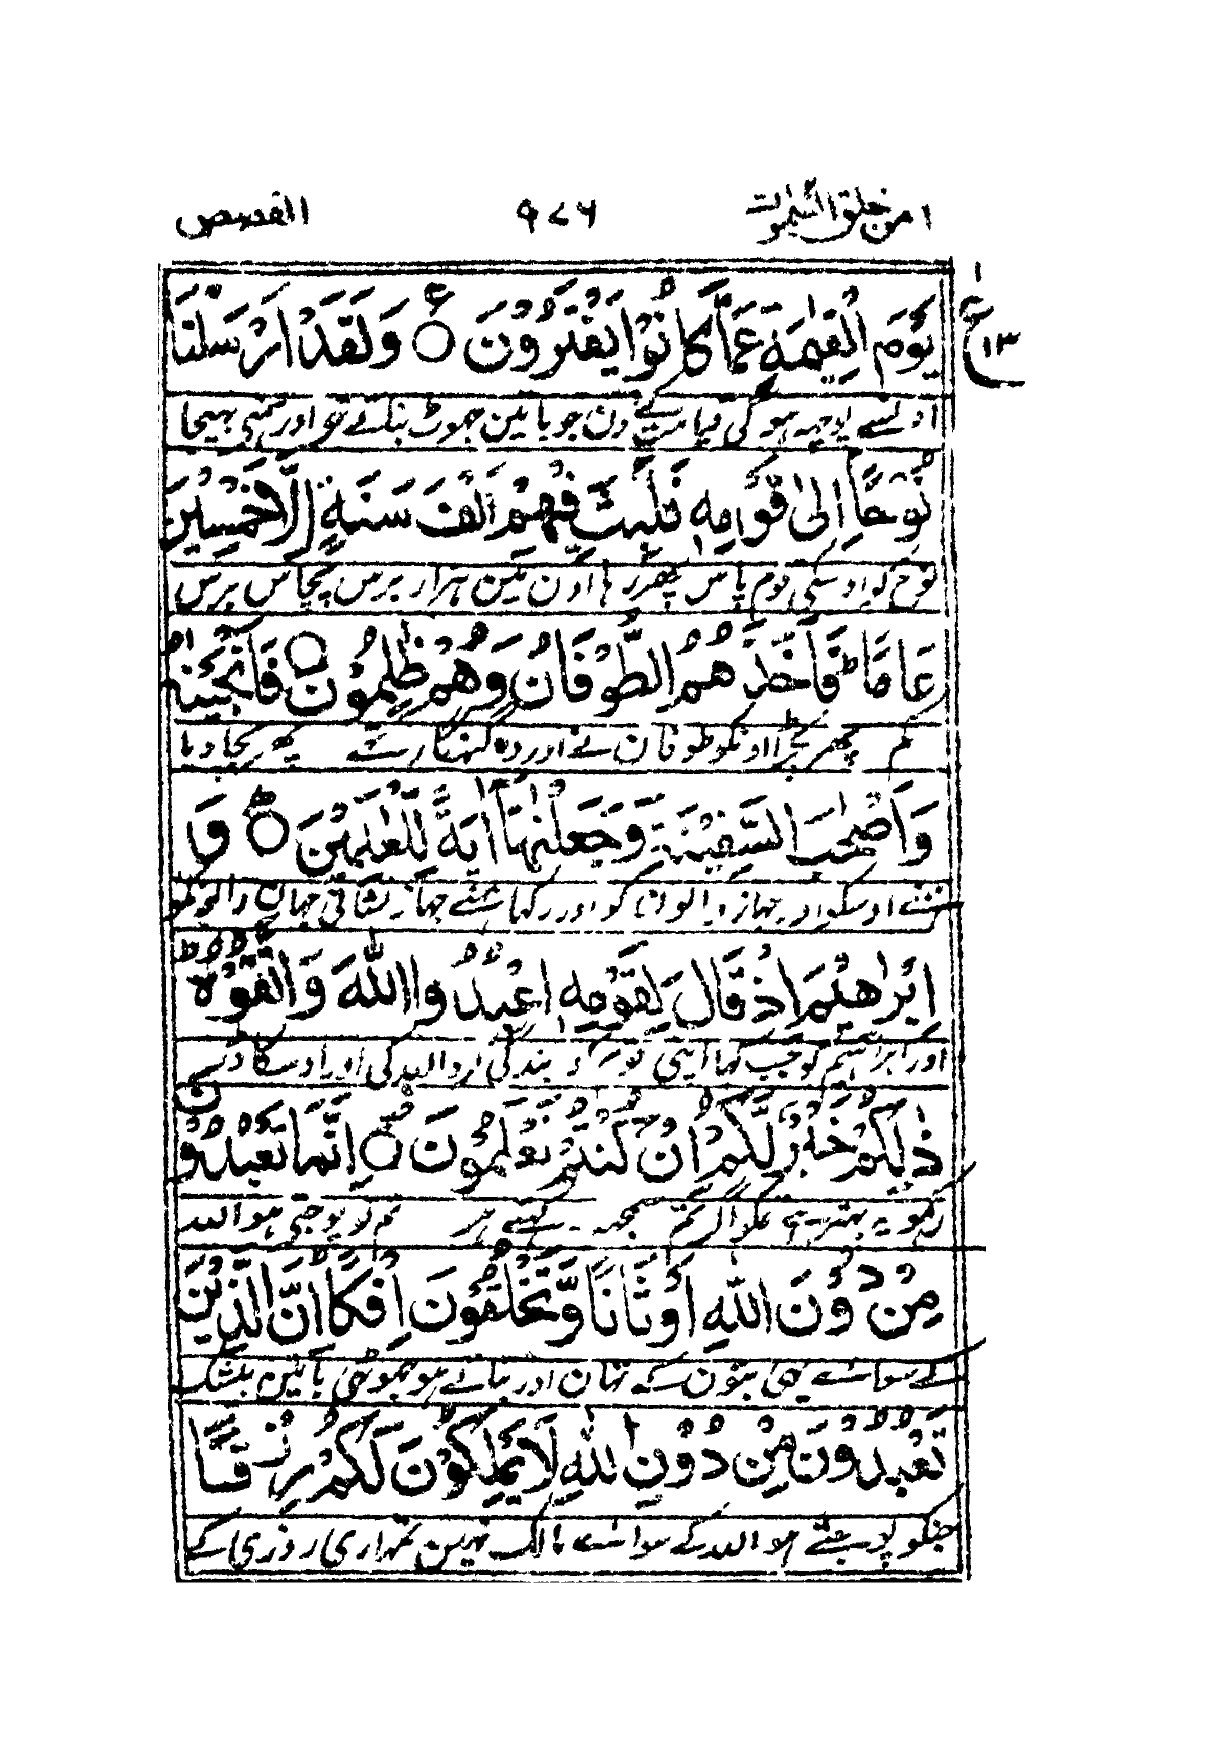 امن خلق السموت ٩٧٦ القصص
يَوْمَ الْقِيٰمَةِ عَمَّا كَانُوْا يَفْتَرُوْنَ ۝ ع وَلَقَدْ اَرْسَلْنَا
ع ١ ١٣
اونسے پوچھ ہوگی قیامت کے دن جو باتین جھوٹ بناتے تھے اور ہمنے بھیجا
نُوْحًا اِلٰى قَوْمِهٖ فَلَبِثَ فِيْهِمْ اَلْفَ سَنَةٍ اِلَّا خَمْسِيْنَ
نوح کو اوسکی قوم پاس پھر رہا اون مین ہزار برس پچاس برس
عَامًا ؕ فَاَخَذَهُمُ الطُّوْفَانُ وَهُمْ ظٰلِمُوْنَ ۝ فَاَنْجَيْنٰهُ
کم پھر پکڑا اونکو طوفان نے اور وہ گنہگار تھے پھر بچا دیا
وَاَصْحٰبَ السَّفِيْنَةِ وَجَعَلْنٰهَا اٰيَةً لِّلْعٰلَمِيْنَ ۝ وَ
ہمنے اوسکو اور جہاز والون کو اور رکھا ہمنے جہاز نشانی جہان والونکو
اِبْرٰهِيْمَ اِذْ قَالَ لِقَوْمِهِ اعْبُدُوا اللّٰهَ وَاتَّقُوْهُ ؕ
اور ابراہیم کو جب کہا اپنی قوم کو بندگی کرو اللہ کی اور اوسکا ڈر
ذٰلِكُمْ خَيْرٌ لَّكُمْ اِنْ كُنْتُمْ تَعْلَمُوْنَ ۝ اِنَّمَا تَعْبُدُوْنَ
رکھو یہ بہتر ہی تمکو اگر تم سمجھ رکھتے ہو تم تو پوجتی ہو اللہ
مِنْ دُوْنِ اللّٰهِ اَوْثَانًا وَّتَخْلُقُوْنَ اِفْكًا ؕ اِنَّ الَّذِيْنَ
کے سوائے یہی بتون کے تھان اور بناتے ہو جھوٹی باتین بیشک
تَعْبُدُوْنَ مِنْ دُوْنِ اللّٰهِ لَا يَمْلِكُوْنَ لَكُمْ رِزْقًا
جنکو پوجتے ہو اللہ کے سوائے مالک نہین تمہاری روزی کے